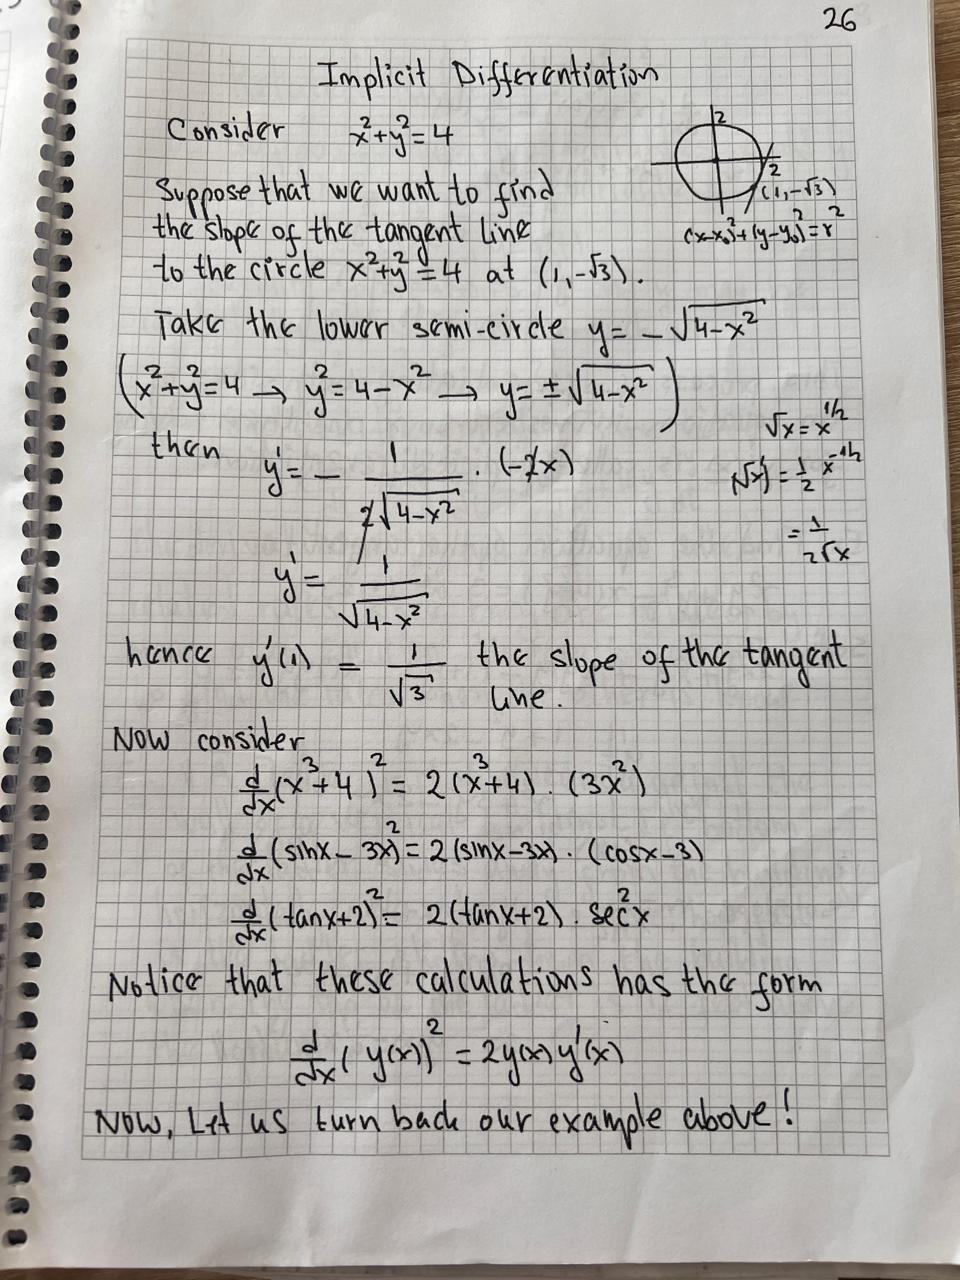 26
Implicit Differentiation
Consider x²+y²=4
2
2
(1,-√3)
(x-x₀)²+(y-y₀)²=r²
Suppose that we want to find
the slope of the tangent line
to the circle x²+y²=4 at (1,-√3).
Take the lower semi-circle y= -√(4-x²)
(x²+y²=4 → y²=4-x² → y=±√(4-x²))
then y'= - 1/(2√(4-x²)) · (-2x)
√x=x^(1/2)
(√x)'=1/2 x^(-1/2)
=1/(2√x)
y'= 1/√(4-x²)
hence y'(1) = 1/√3 the slope of the tangent
line.
Now consider
d/dx(x³+4)²= 2(x³+4).(3x²)
d/dx(sinx-3x)²=2(sinx-3x).(cosx-3)
d/dx(tanx+2)²= 2(tanx+2).sec²x
Notice that these calculations has the form
d/dx(y(x))²=2y(x)y'(x)
Now, Let us turn back our example above!